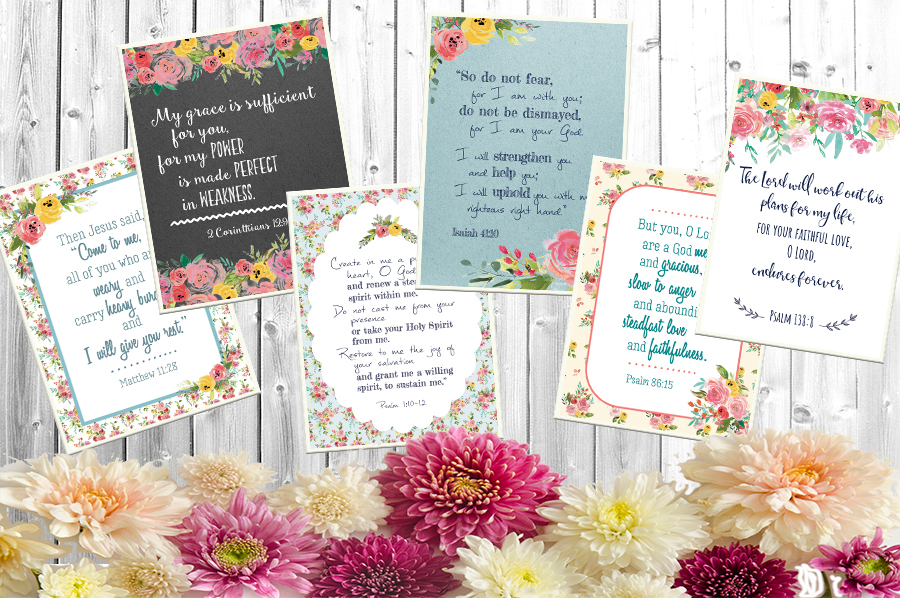 My grace is sufficient
for you,
for my POWER
is made PERFECT
in WEAKNESS.
2 Corinthians 12:9
"So do not fear,
for I am with you;
do not be dismayed,
for I am your God.
I will strengthen you
and help you;
I will uphold you with
righteous right hand."
Isaiah 41:10
The Lord will work out his
plans for my life,
FOR YOUR FAITHFUL LOVE,
O LORD,
endures forever.
PSALM 138:8
Then Jesus said,
"Come to me,
all of you who
weary and
carry heavy
and
I will give you rest."
Matthew 11:28
Create in me a
heart, O God
and renew a
spirit within me.
Do not cast me from your
presence
or take your Holy Spirit
from me.
Restore to me the joy of
your salvation
and grant me a willing
spirit, to sustain me."
Psalm 51:10-12
But you, O
are a God
and gracious,
slow to anger
and
steadfast love
and faithfulness.
Psalm 86:15